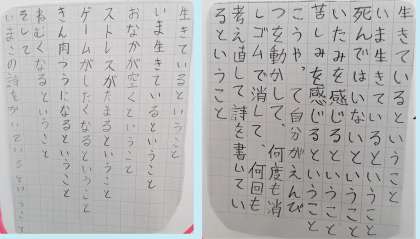 生きているということ
いま生きているということ
おなかが空くということ
ストレスがたまるということ
ゲームがしたくなるということ
きん肉つうになるということ
ねむくなるということ
そして
いまこの詩をかいているということ
生きているということ
いま生きているということ
死んではいないということ
いたみを感じるということ
苦しみを感じるということ
こうやって自分がえんぴ
つを動かして、何度も消
しゴムで消して、何回も
考え直して詩を書いてい
るということ